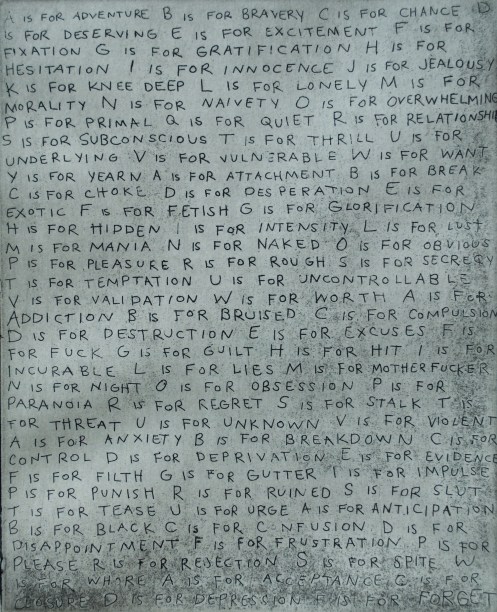 A IS FOR ADVENTURE B IS FOR BRAVERY C IS FOR CHANCE D
IS FOR DESERVING E IS FOR EXCITEMENT F IS FOR
FIXATION G IS FOR GRATIFICATION H IS FOR
HESITATION I IS FOR INNOCENCE J IS FOR JEALOUSY
K IS FOR KNEE DEEP L IS FOR LONELY M IS FOR
MORALITY N IS FOR NAIVETY O IS FOR OVERWHELMING
P IS FOR PRIMAL Q IS FOR QUIET R IS FOR RELATIONSHIP
S IS FOR SUBCONSCIOUS T IS FOR THRILL U IS FOR
UNDERLYING V IS FOR VULNERABLE W IS FOR WANT
Y IS FOR YEARN A IS FOR ATTACHMENT B IS FOR BREAK
C IS FOR CHOKE D IS FOR DESPERATION E IS FOR
EXOTIC F IS FOR FETISH G IS FOR GLORIFICATION
H IS FOR HIDDEN I IS FOR INTENSITY L IS FOR LUST
M IS FOR MANIA N IS FOR NAKED O IS FOR OBVIOUS
P IS FOR PLEASURE R IS FOR ROUGH S IS FOR SECRECY
T IS FOR TEMPTATION U IS FOR UNCONTROLLABLE
V IS FOR VALIDATION W IS FOR WORTH A IS FOR
ADDICTION B IS FOR BRUISED C IS FOR COMPULSION
D IS FOR DESTRUCTION E IS FOR EXCUSES F IS
FOR FUCK G IS FOR GUILT H IS FOR HIT I IS FOR
INCURABLE L IS FOR LIES M IS FOR MOTHERFUCKER
N IS FOR NIGHT O IS FOR OBSESSION P IS FOR
PARANOIA R IS FOR REGRET S IS FOR STALK T IS
FOR THREAT U IS FOR UNKNOWN V IS FOR VIOLENT
A IS FOR ANXIETY B IS FOR BREAKDOWN C IS FOR
CONTROL D IS FOR DEPRIVATION E IS FOR EVIDENCE
F IS FOR FILTH G IS FOR GUTTER I IS FOR IMPULSE
P IS FOR PUNISH R IS FOR RUINED S IS FOR SLUT
T IS FOR TEASE U IS FOR URGE A IS FOR ANTICIPATION
B IS FOR BLACK C IS FOR CONFUSION D IS FOR
DISAPPOINTMENT F IS FOR FRUSTRATION P IS FOR
PLEASE R IS FOR REJECTION S IS FOR SPITE W
IS FOR WHORE A IS FOR ACCEPTANCE C IS FOR
CLOSURE D IS FOR DEPRESSION F IS FOR FORGET